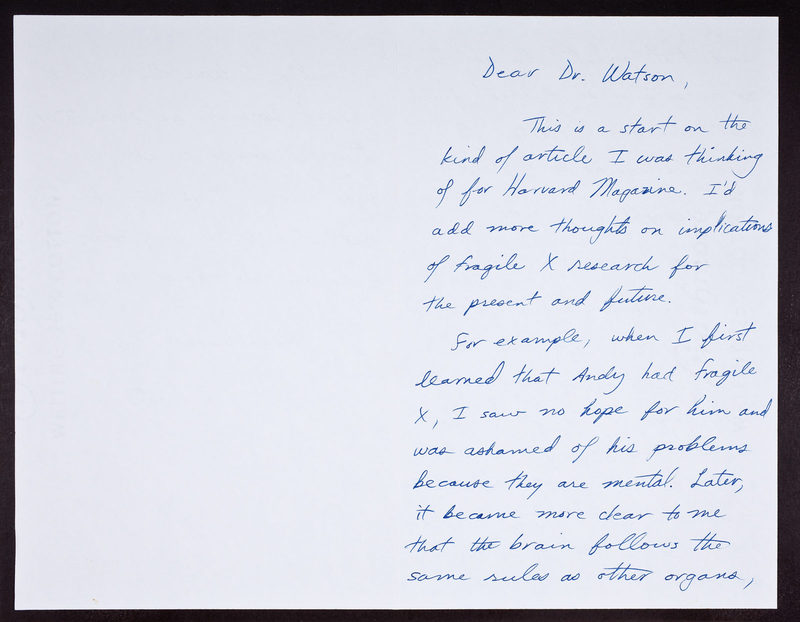 Dear Dr. Watson,
This is a start on the
kind of article I was thinking
of for Harvard Magazine. I'd
add more thoughts on implications
of fragile X research for
the present and future.
For example, when I first
learned that Andy had fragile
X, I saw no hope for him and
was ashamed of his problems
because they are mental. Later,
it became more clear to me
that the brain follows the
same rules as other organs,